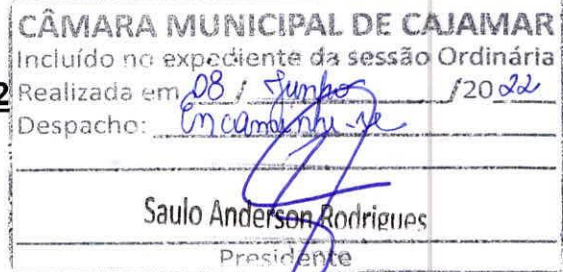 CÂMARA MUNICIPAL DE CAJAMAR
Incluído no expediente da sessão Ordinária
2 Realizada em 08 / Junho /20 22
Despacho: Encaminhe-se
Saulo Anderson Rodrigues
Presidente